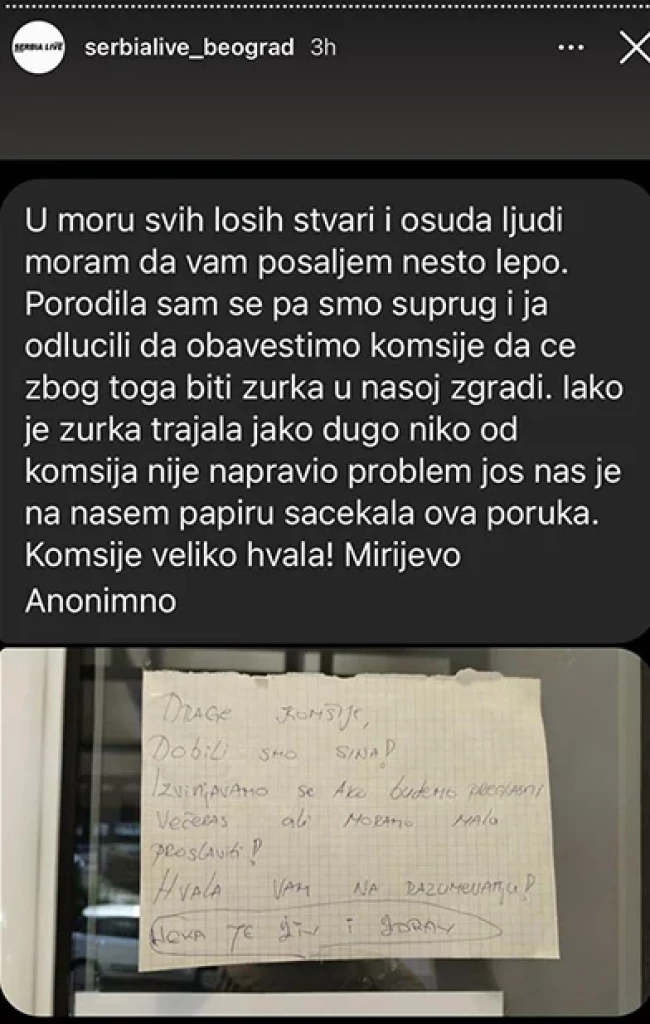 SERBIA LIVE
serbialive_beograd 3h
U moru svih losih stvari i osuda ljudi
moram da vam posaljem nesto lepo.
Porodila sam se pa smo suprug i ja
odlucili da obavestimo komsije da ce
zbog toga biti zurka u nasoj zgradi. Iako
je zurka trajala jako dugo niko od
komsija nije napravio problem jos nas je
na nasem papiru sacekala ova poruka.
Komsije veliko hvala! Mirijevo
Anonimno
DRAGE KOMŠIJE,
DOBILI SMO SINA!
IZVINJAVAMO SE AKO budemo PREGLASNI
VEČERAS ali MORAMO MALO
PROSLAVITI!
HVALA VAM NA RAZUMEVANJU!
NEKA JE ŽIV I ZDRAV